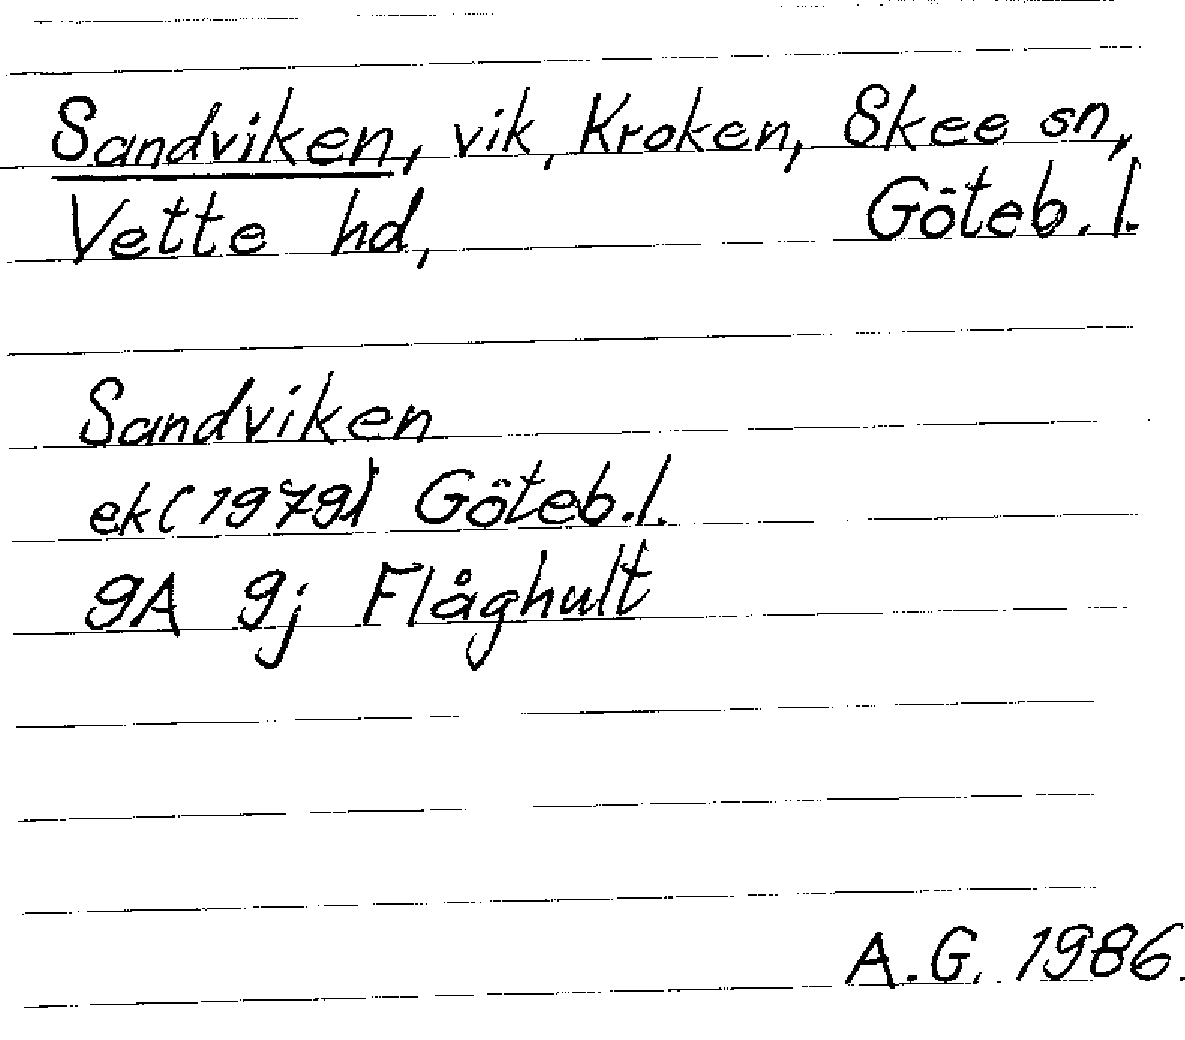 Sandviken, vik, Kroken, Skee sn,
Vette hd, Göteb. l.
Sandviken
ek (1979) Göteb. l.
9A 9j Flåghult
A.G. 1986.